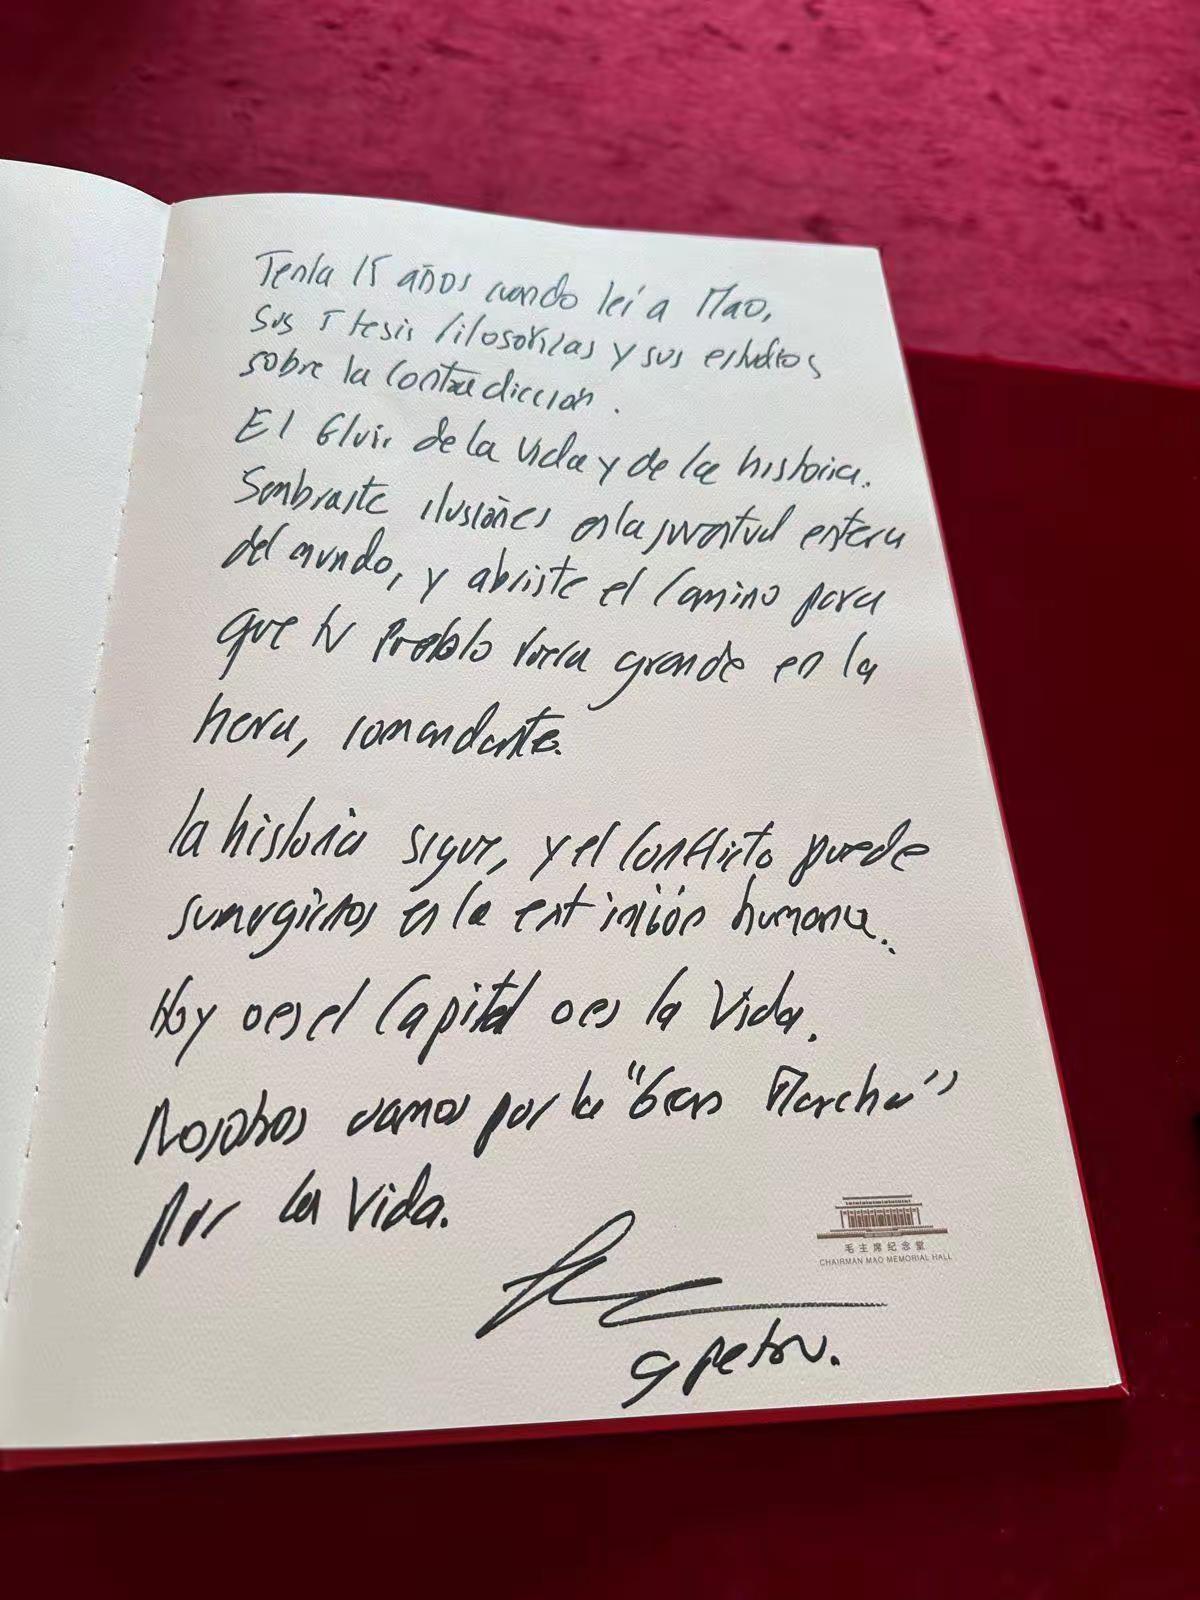 Tenía 15 años cuando leí a Mao,
sus 5 tesis filosóficas y sus estudios
sobre la contradicción.
El fluir de la vida y de la historia.
Sembraste ilusiones en la juventud entera
del mundo, y abriste el camino para
que tu Pueblo fuera grande en la
tierra, comandante.
la historia sigue, y el conflicto puede
sumergirnos en la extinción humana.
Hoy o es el Capital o es la Vida.
Nosotros vamos por la "Gran Marcha"
por la Vida.
毛主席纪念堂
CHAIRMAN MAO MEMORIAL HALL
G Petro.